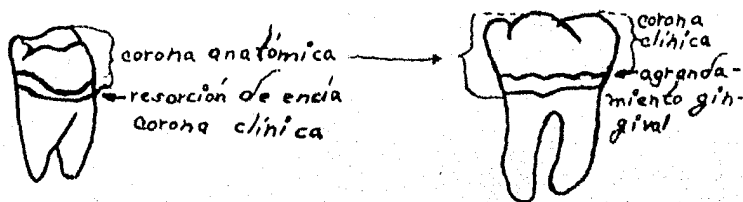 corona anatómica
resorción de encía
corona clínica
corona
clínica
agranda-
miento gin-
gival